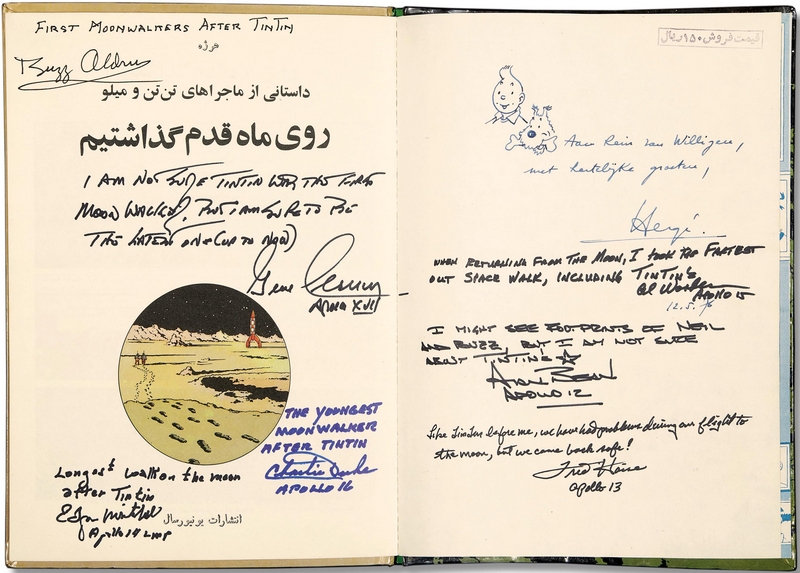 FIRST MOONWALKERS AFTER TINTIN
هرژه
Buzz Aldrin
داستانی از ماجراهای تن‌تن و میلو
روی ماه قدم گذاشتیم
I AM NOT SURE TINTIN WAS THE FIRST
MOON WALKER, BUT I AM SURE TO BE
THE LATEST ONE (UP TO NOW)
Gene Cernan
APOLLO XVII
THE YOUNGEST
MOONWALKER
AFTER TINTIN
Charlie Duke
APOLLO 16
Longest walk on the moon
after Tintin
Edgar Mitchell
Apollo 14 LMP
انتشارات یونیورسال
قیمت فروش ۱۵۰ ریال
Aan Rein van Willigen,
met hartelijke groeten,
Hergé.
WHEN RETURNING FROM THE MOON, I TOOK THE FARTHEST
OUT SPACE WALK, INCLUDING TINTIN'S
Al Worden
APOLLO 15
12.5.76
I MIGHT SEE FOOTPRINTS OF NEIL
AND BUZZ, BUT I AM NOT SURE
ABOUT TINTINS
Alan Bean
APOLLO 12
Like Tintin before me, we have had problems during our flight to
the moon, but we came back safe!
Fred Haise
Apollo 13